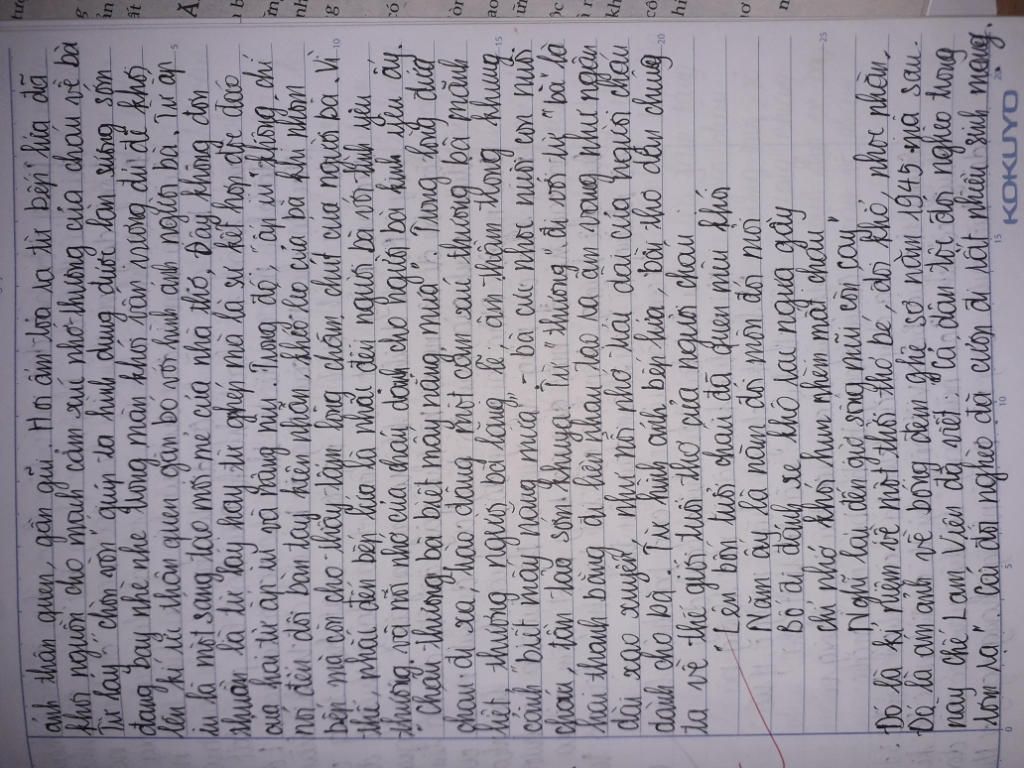 ảnh thân quen, gần gũi. Hơi ấm tỏa ra từ bếp lửa đã
khơi nguồn cho mạnh cảm xúc nhớ thương của cháu về bà
Từ láy "chờn vờn" giúp ta hình dung dưới làn sương sớm
đang bay nhè nhẹ trong màn khói vấn vương đủ để khơi
lên kí ức thân quen gắn bó với hình ảnh người bà. Từ ấp
iu là một sáng tạo mới mẻ của nhà thơ, Đây không đơn
thuần là từ láy hay từ ghép mà là sự kết hợp độc đáo
của hai từ ấp iu và nâng niu. Trong đó, "ấp iu" không chỉ
nói đến đôi bàn tay kiên nhẫn khéo léo của bà khi nhóm
bếp mà còn cho thấy tấm lòng chăm chút của người bà. Vì
thế, nhắc đến bếp lửa là nhắc đến người bà với tình yêu
thương và nỗi nhớ của cháu dành cho người bà kính yêu ấy.
"Cháu thương bà biết mấy nắng mưa". Trong lòng đứa
cháu đi xa, trào dâng một cảm xúc thương bà mãnh
liệt thương người bà lặng lẽ âm thầm trong khung
cảnh "biết mấy nắng mưa", bà cúc nhóc nuôi con nuôi
cháu, tần tảo sớm khuya. Từ "thương" đi với từ "bà" là
hai thanh bằng đi liền nhau tạo ra âm vang như ngân
dài xao xuyến, như nỗi nhớ trải dài của người cháu
dành cho bà. Từ hình ảnh bếp lửa, bài thơ đến chúng
ta về thế giới tuổi thơ của người cháu
"Lên bốn tuổi cháu đã quen mùi khói
Năm ấy là năm đói mòn đói mỏi
Bố đi đánh xe khô rạc ngựa gầy
chỉ nhớ khói hun nhèm mắt cháu
Nghĩ lại đến giờ sống mũi còn cay"
Đó là kỉ niệm về một thời thơ bé, đói khổ, nhọc nhằn.
Đó là ám ảnh về bóng đêm ghê sợ năm 1945 mà sau
này chế Lan Viên đã viết: "Cả dân tộc đói nghèo trong
rơm rạ" cái đói nghèo đã cướp đi rất nhiều sinh mạng.
KOKUYO